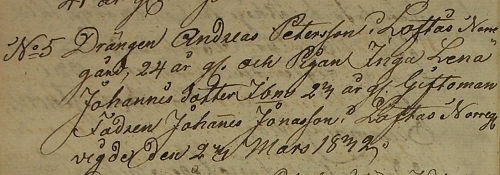 No 5 Drängen Andreas Petersson i Löftås Norre
gård, 24 år gl. och Pigan Inga Lena
Johannis dotter 23 år gl. Giftoman
Fadren Johannes Jonasson, i Löftås Norreg
vigde den 23 Mars 1832.